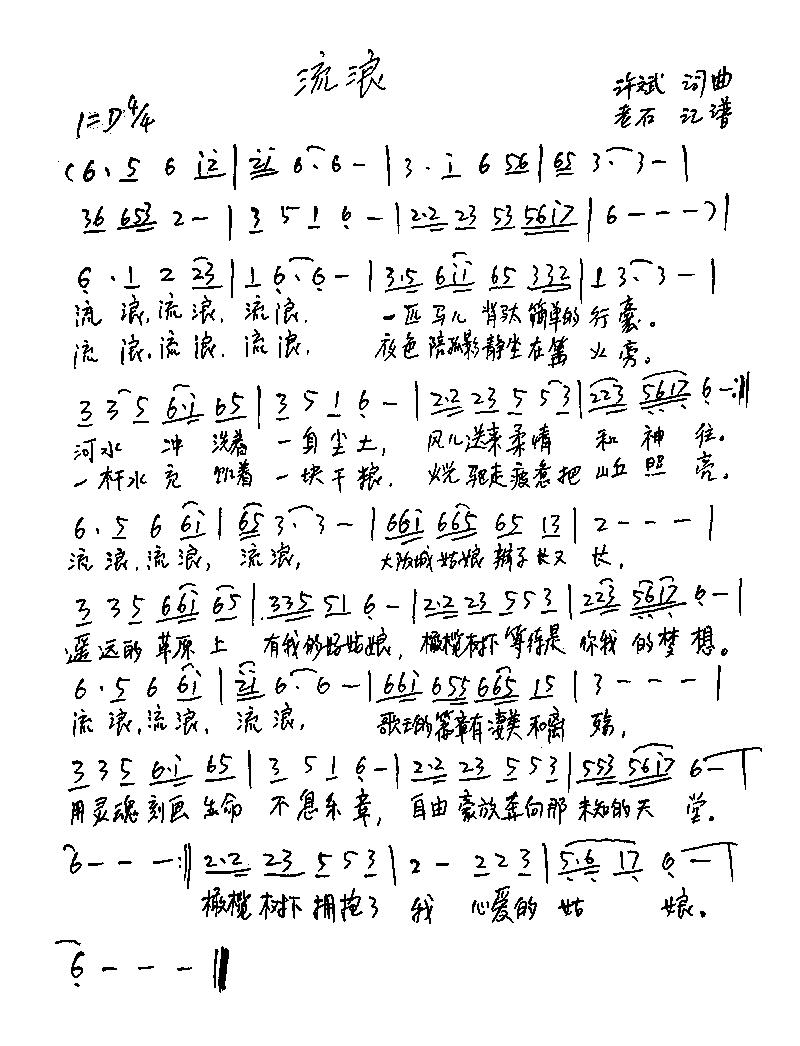 流浪
许斌 词曲
1=D 4/4
老石 记谱
(6· 5 6 i2 | 2i 6· 6 - | 3 · i 6 56 | 65 3· 3 - |
36 653 2 - | 3 5 1 6 - | 2·2 23 53 5617 | 6 - - - ) |
6 · 1 2 23 | 1 6· 6 - | 3·5 6ii 65 332 | 1 3· 3 - |
流 浪,流 浪, 流浪, 一匹马儿 背驮 简单的 行 囊。
流 浪,流 浪, 流浪, 夜色陪孤影静坐在篝 火 旁。
3 3 5 6·i 65 | 3 5 1 6 - | 2·2 23 5 5 3 | 223 5617 6 - :||
河水 冲 洗着 一身尘土, 风儿送来柔情 和 神 往。
一杆水 壳 饮着 一块干粮, 驰走疲惫把 山丘 照 亮。
6 · 5 6 6i | 65 3· 3 - | 66i 665 65 13 | 2 - - - |
流 浪,流 浪, 流浪, 大阪城姑娘 辫子长又 长,
3 3 5 66i 65 | 335 51 6 - | 2·2 23 5 5 3 | 223 5617 6 - |
遥远的 草原 上 有我的好姑娘, 橄榄树下 等待是 你我 的梦 想。
6 · 5 6 6i | 2i 6· 6 - | 66i 655 665 15 | 3 - - - |
流 浪,流 浪, 流浪, 歌王的篇章有凄美和离 殇,
3 3 5 6·i 65 | 3 5 1 6 - | 2·2 23 5 5 3 | 553 5617 6 - |
用灵魂刻画 生命 不息乐章, 自由豪放奔向那 未知的天 堂。
6 - - - :|| 2·2 23 5 5 3 | 2 - 2 2 3 | 5·6 17 6 - |
橄榄 树下 拥抱了 我 心爱的 姑 娘。
6 - - - ||